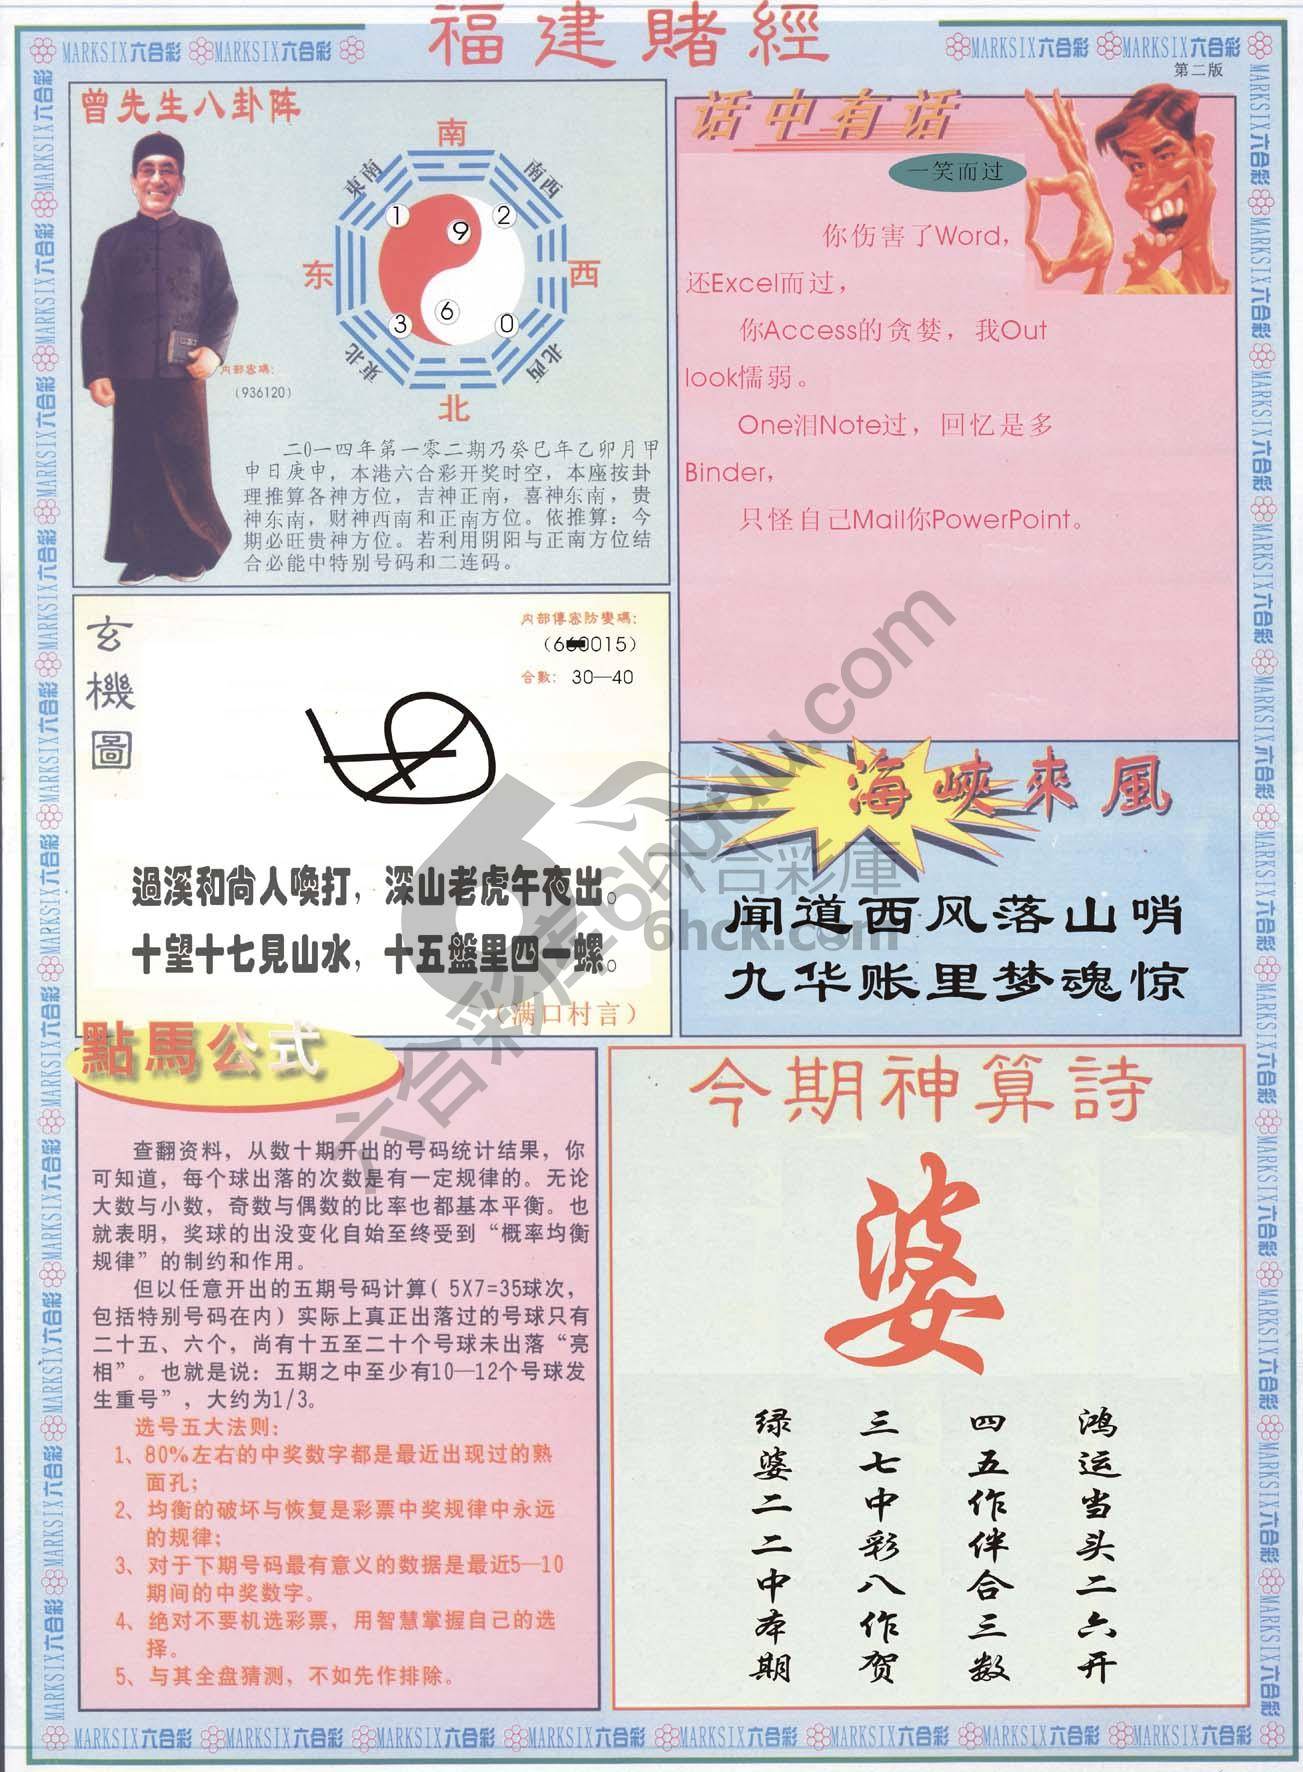 福建賭經
MARKSIX六合彩 MARKSIX六合彩
MARKSIX六合彩 MARKSIX六合彩
第二版
曾先生八卦阵
南
東南
南西
1
9
2
东
西
3
6
0
東北
北西
北
内部密碼:
(936120)
二0一四年第一零二期乃癸巳年乙卯月甲
申日庚申，本港六合彩开奖时空，本座按卦
理推算各神方位，吉神正南，喜神东南，贵
神东南，财神西南和正南方位。依推算：今
期必旺贵神方位。若利用阴阳与正南方位结
合必能中特别号码和二连码。
话中有话
一笑而过
你伤害了Word，
还Excel而过，
你Access的贪婪，我Out
look懦弱。
One泪Note过，回忆是多
Binder，
只怪自己Mail你PowerPoint。
玄機圖
内部傳密防變碼:
0015)
合數: 30—40
過溪和尚人喚打，深山老虎午夜出。
十望十七見山水，十五盤里四一螺。
（满口村言）
海峽來風
闻道西风落山哨
九华账里梦魂惊
六合彩库6huquu.com
六合彩庫
6hck.com
點馬公式
查翻资料，从数十期开出的号码统计结果，你
可知道，每个球出落的次数是有一定规律的。无论
大数与小数，奇数与偶数的比率也都基本平衡。也
就表明，奖球的出没变化自始至终受到“概率均衡
规律”的制约和作用。
但以任意开出的五期号码计算( 5X7=35球次，
包括特别号码在内）实际上真正出落过的号球只有
二十五、六个，尚有十五至二十个号球未出落“亮
相”。也就是说：五期之中至少有10—12个号球发
生重号”，大约为1/3。
选号五大法则：
1、80%左右的中奖数字都是最近出现过的熟
面孔；
2、均衡的破坏与恢复是彩票中奖规律中永远
的规律；
3、对于下期号码最有意义的数据是最近5—10
期间的中奖数字。
4、绝对不要机选彩票，用智慧掌握自己的选
择。
5、与其全盘猜测，不如先作排除。
今期神算詩
婆
鸿运当头二六开
四五作伴合三数
三七中彩八作贺
绿婆二二中本期
MARKSIX六合彩 MARKSIX六合彩 MARKSIX六合彩 MARKSIX六合彩 MARKSIX六合彩 MARKSIX六合彩 MARKSIX六合彩 MARKSIX六合彩